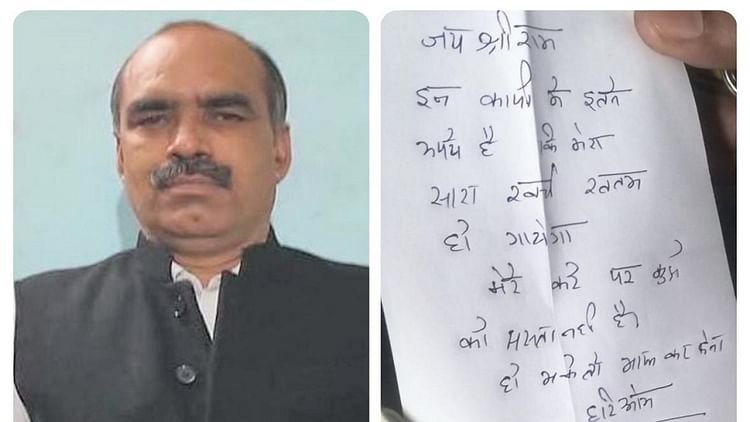 जय श्री राम
इन कापी मे इतने
रूपये है कि मेरा
सारा खर्चा खतम
हो गायेगा
मेरे करे पर कुसे
को ममता नही है।
हो सके तो माफ कर देना
हरि ओम